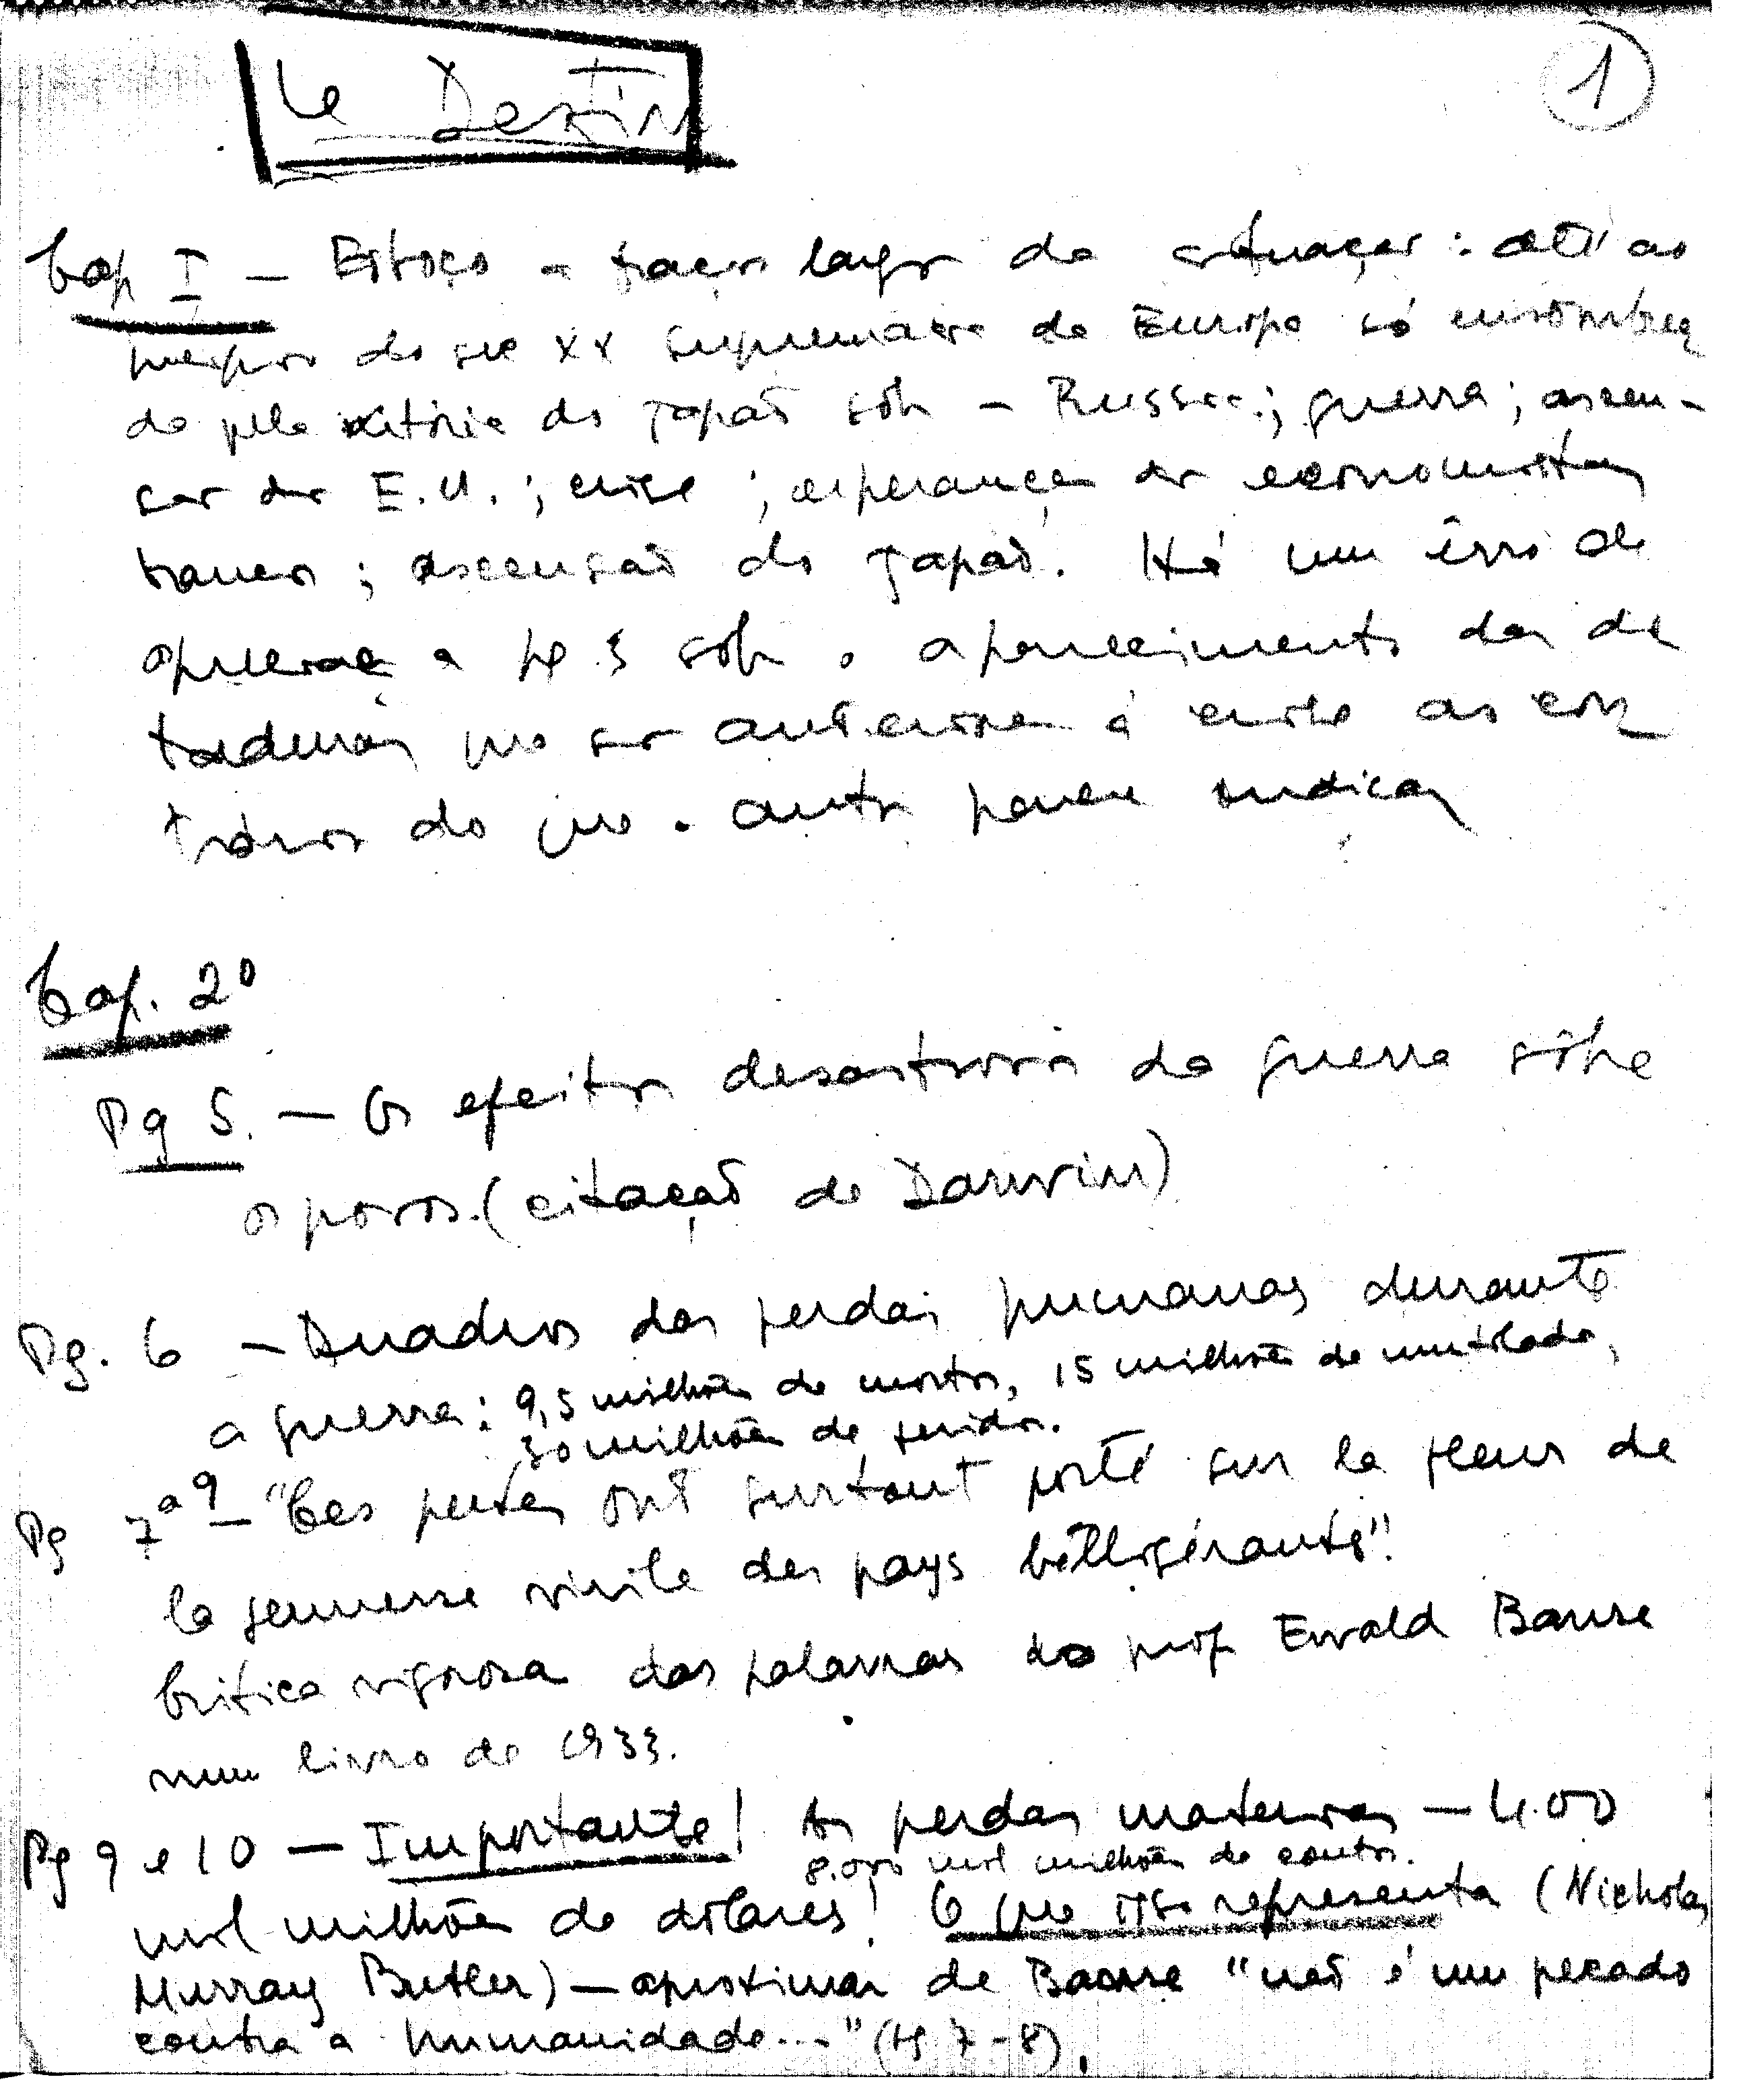 Le Destin
1
Cap I — Esboço a traços largos da situação: até aos
principios do sec XX supremacia da Europa só ensombra
da pela vitória do Japão sôb — Russia; guerra; ascen-
sao dos E.U.; crise; esperança dos economistas
; ascensão do Japão. Há um êrro de
apreciação a pg 3 sôb o aparecimento das di
taduras que sao anteriores á crise ao con
trário do que o autor parece indicar
Cap. 2º
Pg 5. — Os efeitos desastrosos da guerra sôbre
os povos. (citação de Darwin)
Pg. 6 — Quadros das perdas humanas durante
a guerra: 9,5 milhões de mortos, 15 milhões de mutilados,
30 milhões de feridos.
Pg 7 a 9 — "Ces pertes ont surtout porté sur la fleur de
la jeunesse virile des pays belligérants".
Critica vigorosa das palavras do prof Ewald Banse
num livro de 1933.
Pg 9 e 10 — Importante! As perdas materiais — 400
8.000 mil milhões de contos.
mil milhões de dólares! O que isso representa (Nicholas
Murray Butler) — aproximar de Banse "não é um pecado
contra a humanidade..." (pg 7-8).